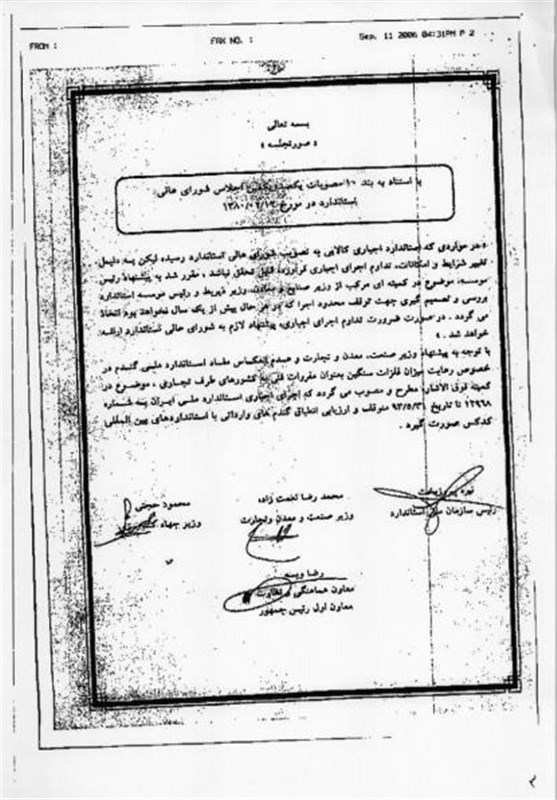 FROM :
FAX NO. :
Sep. 11 2006 04:31PM P 2
بسمه تعالی
« صورتجلسه »
با استناد به بند ۱۰ مصوبات یکصد و یکمین اجلاس شورای عالی
استاندارد در مورخ ۱۳۸۰/۰۲/۱۲
« در مواردی که استاندارد اجباری کالایی به تصویب شورای عالی استاندارد رسیده لیکن به دلیل
تغییر شرایط و امکانات، تداوم اجرای اجباری فرآورده قابل تحقق نباشد ، مقرر شد به پیشنهاد رئیس
موسسه، موضوع در کمیته ای مرکب از وزیر صنایع و معادن، وزیر ذیربط و رئیس موسسه استاندارد
بررسی و تصمیم گیری جهت توقف محدود اجرا که در هر حال بیش از یک سال نخواهد بود اتخاذ
می گردد . در صورت ضرورت تداوم اجرای اجباری، پیشنهاد لازم به شورای عالی استاندارد ارائه
خواهد شد . »
با توجه به پیشنهاد وزیر صنعت، معدن و تجارت و عدم انعکاس مفاد استاندارد ملی گندم در
خصوص رعایت میزان فلزات سنگین بعنوان مقررات فنی به کشورهای طرف تجاری ، موضوع در
کمیته فوق الاشاره مطرح و مصوب می گردد که اجرای اجباری استاندارد ملی ایران به شماره
۱۲۹۶۸ تا تاریخ ۹۳/۵/۳۱ متوقف و ارزیابی انطباق گندم های وارداتی با استانداردهای بین المللی
کدکس صورت گیرد .
نیره پیروزبخت
رئیس سازمان ملی استاندارد
محمد رضا نعمت زاده
وزیر صنعت و معدن و تجارت
محمود حجتی
وزیر جهاد
رضا ویسه
معاون هماهنگی و نظارت
معاون اول رئیس جمهور
۲